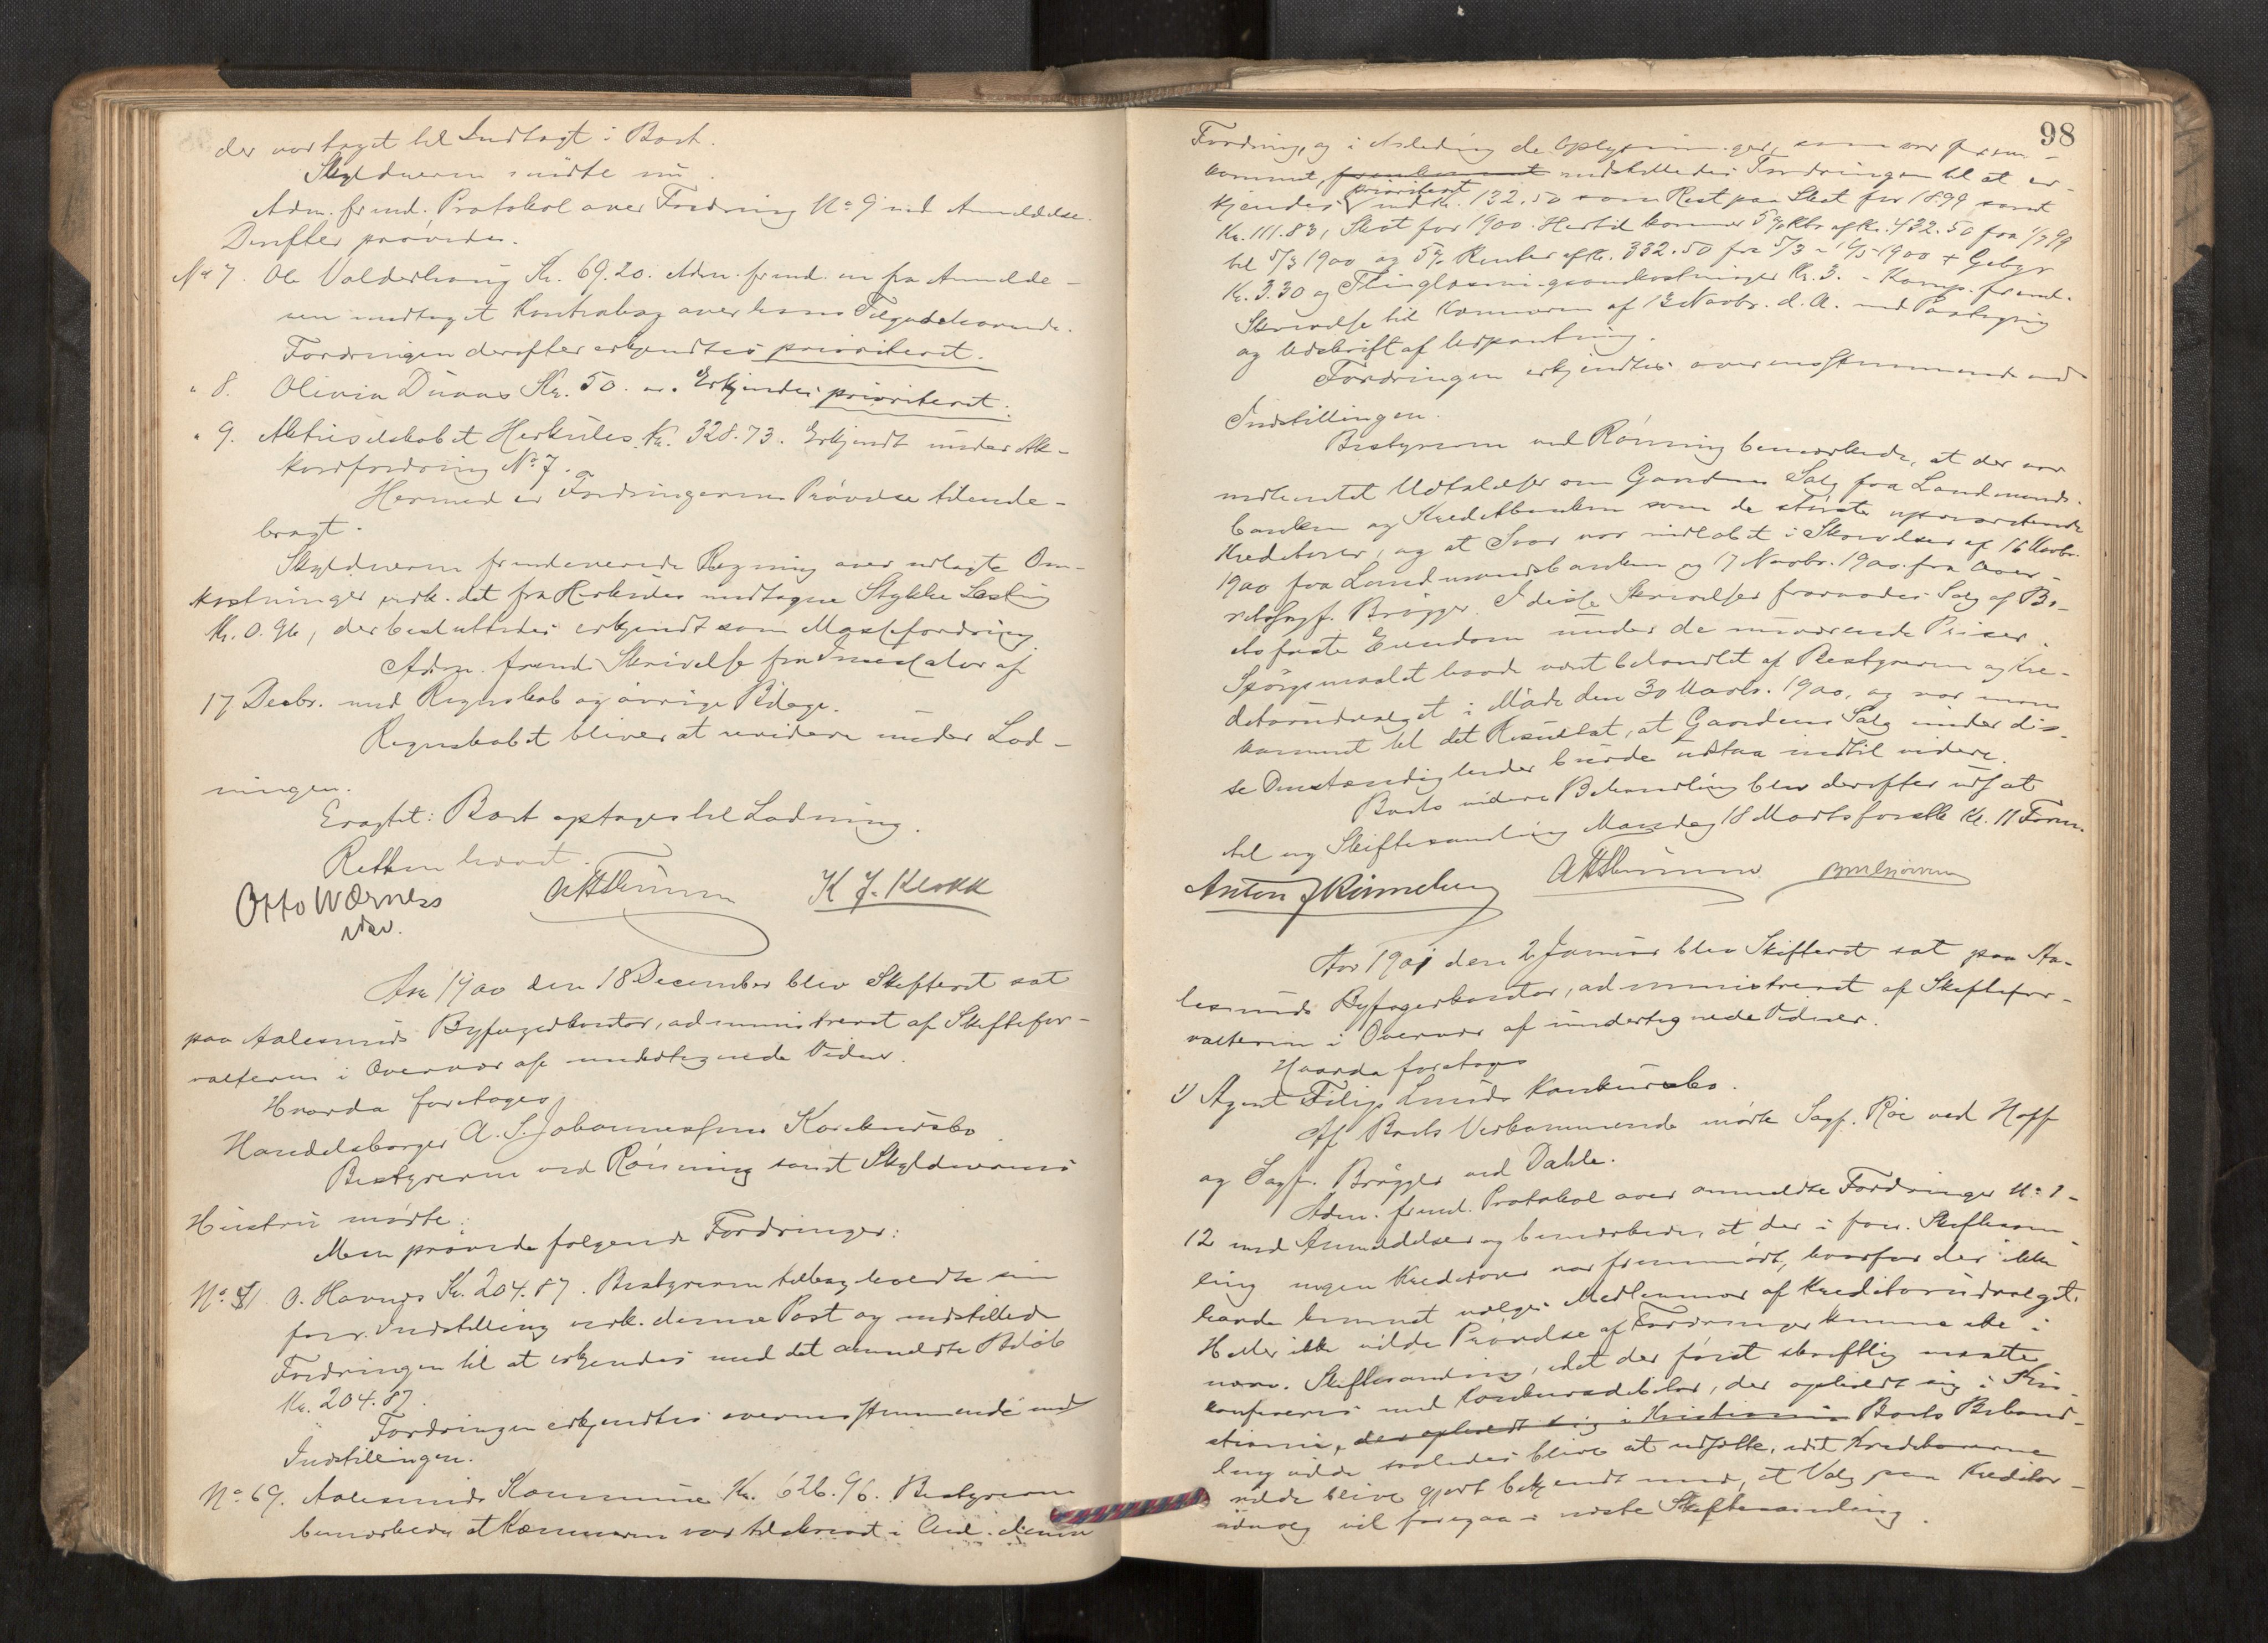 der var taget til Indtægt i Boet.
Skyldneren mødte nu.
Adm. freml. Protokol over Fordring No 9 med Anmeldelse.
Derefter prøvedes.
No 7. Ole Valderhaug Kr. 69.20. Adm. freml. en fra Anmelde-
ren modtaget Kontrabog over hans Tilgodehavende.
Fordringen derefter erkjendtes prioriteret.
" 8. Olivia Kr. 50. Erkjendes prioriteret.
" 9. Aktieselskabet Herkules Kr. 328.73. Erkjendt under Ak-
kordfordring No 7.
Hermed er Fordringernes Prøvelse tilende-
bragt.
Skyldneren fremleverede Regning over udlagte Om-
kostninger vedk. det fra Herkules modtagne Stykke Lasting
Kr. 0.96, der besluttedes erkjendt som Massefordring.
Adm. freml. Skrivelse fra af
17 Decbr. med Regnskab og øvrige Bilage.
Regnskabet bliver at revidere under Lod-
ningen.
Eragtet: Boet optages til Lodning.
Retten hævet.
Otto Wærness K J. Klokk
vidne.
Aar 1900 den 18 December blev Skifteret sat
paa Aalesunds Byfogedkontor, administreret af Skiftefor-
valteren i Overvær af undertegnede Vidner.
Hvorda foretages
Handelsborger A. S. Johannessens Konkursbo.
Bestyreren ved Rønning samt Skyldnerens
Hustru mødte.
Man prøvede følgende Fordringer:
No 51. O. Havnes Kr. 204.87. Bestyreren tilbagekaldte sin
forr. Indstilling vedk. denne Post og indstillede
Fordringen til at erkjendes med det anmeldte Beløb
Kr. 204.87.
Fordringen erkjendtes overensstemmende med
Indstillingen.
No 69. Aalesunds Kommune Kr. 626.96. Bestyreren
bemærkede at Kæmneren var tilskrevet i Anl. denne
98
Fordring, og i Anledning de Oplysninger, som var frem-
kommet, fremkommet indstilledes Fordringen til at er-
kjendes prioriteret med Kr. 132.50 som Rest paa Skat for 1899 samt
Kr. 111.83, Skat for 1900. Hertil kommer 5% Rtr. af Kr. 432.50 fra 1/7 99
til 5/3 1900 og 5% Renter af Kr. 332.50 fra 5/3 - 1900 + Gebyr
Kr. 3.30 og Thinglæsningsomkostninger Kr. 3. - Komp. freml.
Skrivelse til Kæmneren af 13 Novbr. d. A. med Paategning
og Udskrift af Udpantning.
Fordringen erkjendtes overensstemmende med
Indstillingen.
Bestyreren ved Rønning bemærkede, at der var
indhentet Udtalelser om Gaardens Salg fra Landmands-
banken og Kreditbanken som de største
Kreditorer, og at Svar var indløbet i Skrivelser af 16 Novbr.
1900 fra Landmandsbanken og 17 Novbr. 1900 fra Over-
retssagf. Brøgger. I disse Skrivelser fraraades Salg af Bo-
ets faste Eiendom under de nuværende Priser.
Spørgsmaalet havde været behandlet af Bestyreren og Kre-
ditorudvalget i Møde den 30 Novbr. 1900, og var man
kommet til det Resultat, at Gaardens Salg under dis-
se Omstændigheder burde udstaa indtil videre.
Boets videre Behandling blev derefter udsat
til ny Skiftesamling Mandag 18 Marts førstk. Kl. 11 Form.
Anton J Rinneberg
Aar 1901 den 2 Januar blev Skifteret sat paa Aa-
lesunds Byfogedkontor, administreret af Skiftefor-
valteren i Overvær af undertegnede Vidner.
Hvorda foretages
1) Agent Filip Lunds Konkursbo.
Af Boets Vedkommende mødte Sagf. Roe ved Hoff
og Sagf. Brøgger ved Dahle.
Adm. freml. Protokol over anmeldte Fordringer No 1-
12 med Anmeldelser og bemærkede, at der i forr. Skiftesam-
ling ingen Kreditorer var fremmødt, hvorfor der ikke
havde kunnet vælges Medlemmer af Kreditorudvalget.
Heller ikke vilde Prøvelse af Fordringer kunne ske i
nærv. Skiftesamling, idet der først skriftlig maatte
konfereres med Konkursdebitor, der opholdt sig i Kri-
stiania, der opholdt sig i Kristiania Boets Behand-
ling vilde saaledes blive at udsætte, idet Kreditorerne
vilde blive gjort bekjendt med, at Valg paa Kreditor-
udvalg vil foregaa i næste Skiftesamling.